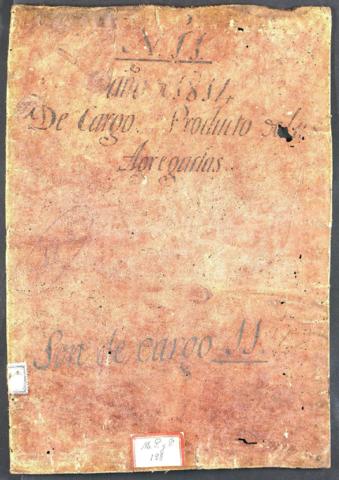 N. 11
año d 1814
De Cargo. Producto de
Agregadas.
Son de cargo 11.
198